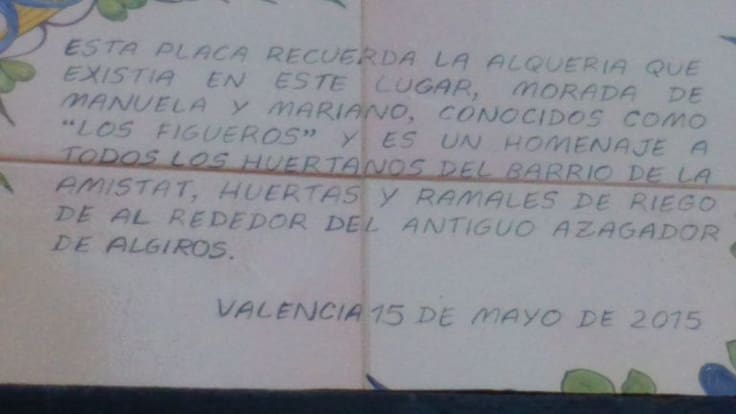 ESTA PLACA RECUERDA LA ALQUERIA QUE
EXISTIA EN ESTE LUGAR, MORADA DE
MANUELA Y MARIANO, CONOCIDOS COMO
"LOS FIGUEROS" Y ES UN HOMENAJE A
TODOS LOS HUERTANOS DEL BARRIO DE LA
AMISTAT, HUERTAS Y RAMALES DE RIEGO
DE AL REDEDOR DEL ANTIGUO AZAGADOR
DE ALGIROS.
VALENCIA 15 DE MAYO DE 2015